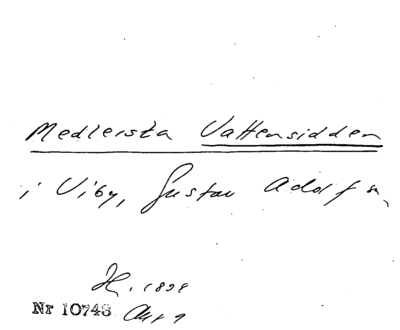 Medlersta Vattensidden
i Viby, Gustav Adolf sn,
H. 1898
Nr 10743